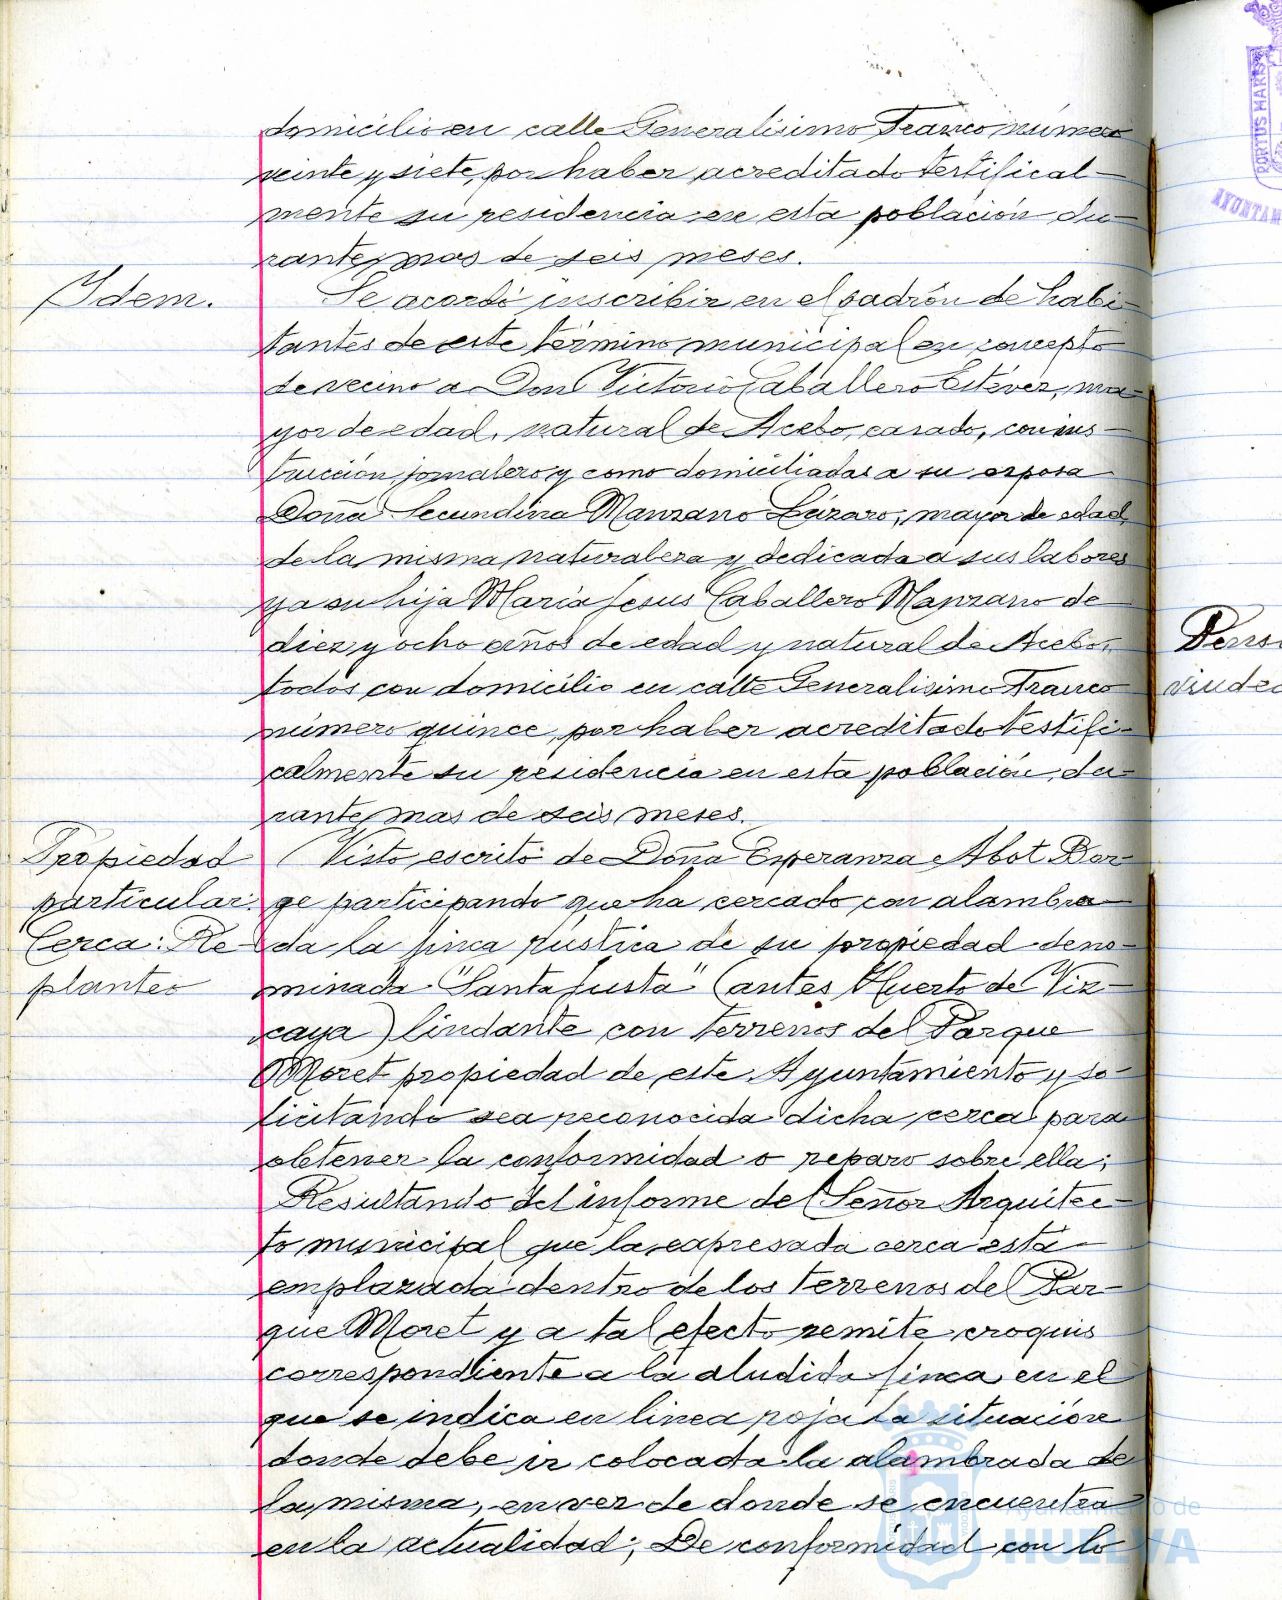 domicilio en calle Generalisimo Franco número
veinte y siete, por haber acreditado testifical-
mente su residencia en esta población du-
rante mas de seis meses.
Idem.
Se acordó inscribir en el padrón de habi-
tantes de este término municipal en concepto
de vecino a Don Victorio Caballero Estévez, ma-
yor de edad, natural de Acebo, casado, con ins-
trucción jornalero y como domiciliadas a su esposa
Doña Secundina Manzano Lázaro, mayor de edad,
de la misma naturaleza y dedicada a sus labores
y a su hija María Jesus Caballero Manzano de
diez y ocho años de edad y natural de Acebo,
todos con domicilio en calle Generalisimo Franco
número quince, por haber acreditado testifi-
calmente su residencia en esta población, du-
rante mas de seis meses.
Propiedad
particular.
Cerca: Re-
planteo
Visto escrito de Doña Esperanza Abot Bor-
ge participando que ha cercado con alambra-
da la finca rústica de su propiedad deno-
minada "Santa Justa" (antes Huerto de Viz-
caya) lindante con terrenos del Parque
Moret propiedad de este Ayuntamiento y so-
licitando sea reconocida dicha cerca para
obtener la conformidad o reparo sobre ella;
Resultando del informe del Señor Arquitec-
to municipal que la expresada cerca está
emplazada dentro de los terrenos del Par-
que Moret y a tal efecto remite croquis
correspondiente a la aludida finca en el
que se indica en linea roja la situación
donde debe ir colocada la alambrada de
la misma, en vez de donde se encuentra
en la actualidad; De conformidad con lo
Ayuntamiento de
HUELVA
PORTUS MARIS
AYUNTAM
Pensi
viude